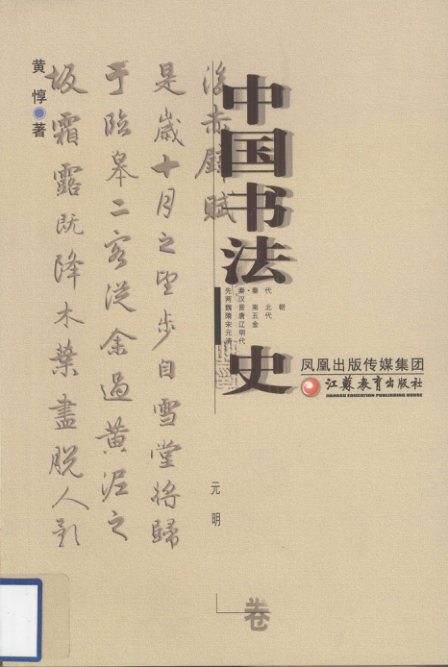 中国书法史
先秦·秦代
两汉
魏晋南北朝
隋唐五代
宋辽金
元明
清代
凤凰出版传媒集团
江苏教育出版社
JIANGSU EDUCATION PUBLISHING HOUSE
元明
卷
後赤壁賦
是歲十月之望步自雪堂將歸
于臨皋二客從余過黃泥之
坂霜露既降木葉盡脫人影
黄惇●著